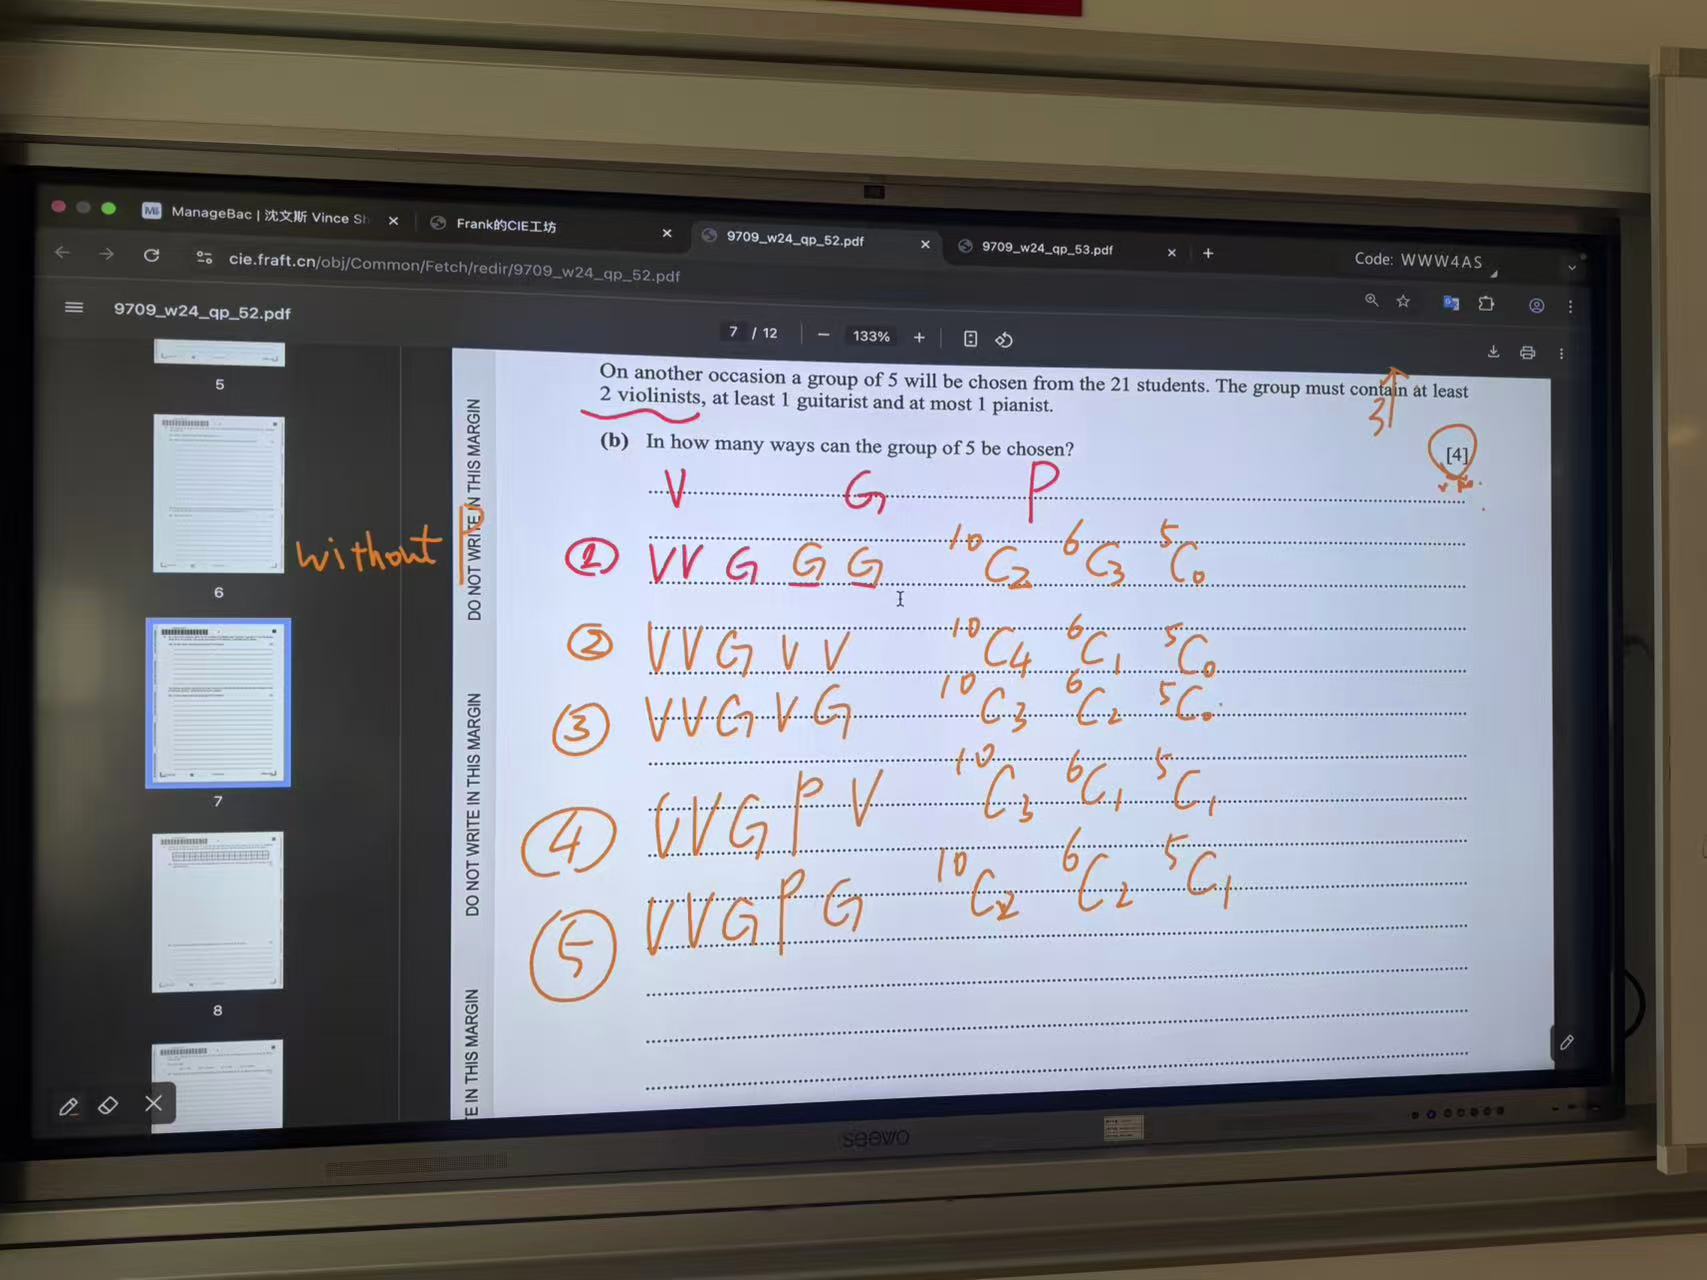 ManageBac | 沈文斯 Vince Sh
Frank的CIE工坊
9709_w24_qp_52.pdf
9709_w24_qp_53.pdf
Code: WWW4AS
cie.fraft.cn/obj/Common/Fetch/redir/9709_w24_qp_52.pdf
9709_w24_qp_52.pdf
7 / 12
133%
5
6
7
8
DO NOT WRITE IN THIS MARGIN
DO NOT WRITE IN THIS MARGIN
TE IN THIS MARGIN
On another occasion a group of 5 will be chosen from the 21 students. The group must contain at least
2 violinists, at least 1 guitarist and at most 1 pianist.
3
(b) In how many ways can the group of 5 be chosen?
[4]
V G P
without P
① VV G G G 10C2 6C3 5C0
② VVG V V 10C4 6C1 5C0
③ VVG V G 10C3 6C2 5C0
④ VVG P V 10C3 6C1 5C1
⑤ VVG P G 10C2 6C2 5C1
seewo